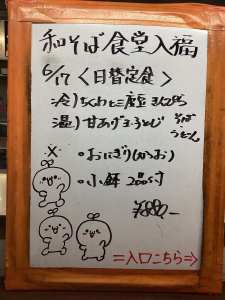 和そば食堂入福
6/17 〈日替定食〉
冷)ちくわと三度豆
温)甘あげ玉子とじ そば
うどん
・おにぎり(かつお)
・小鉢 2品付
¥880-
⇒入口こちら⇒